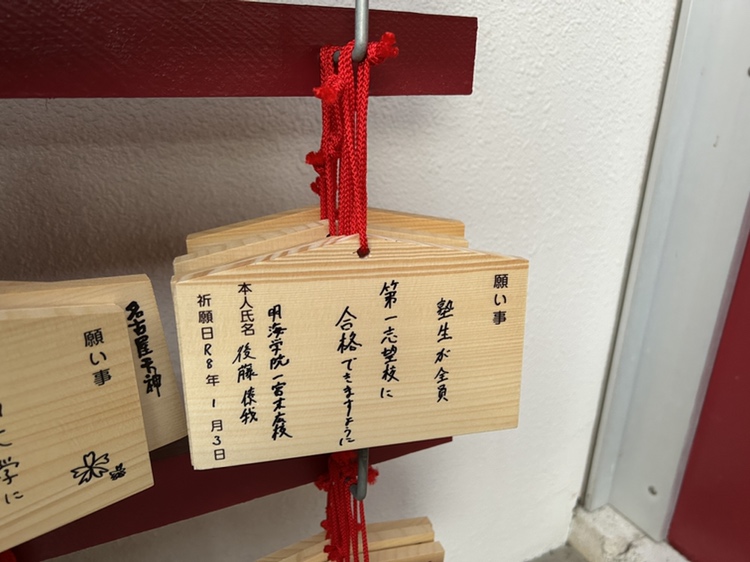 願い事
塾生が全員
第一志望校に
合格できますように
明海学院一宮本部校
本人氏名 後藤
祈願日R8年1月3日
名古屋天神
願い事
学に